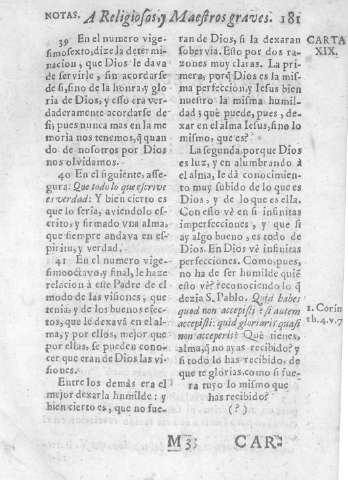 NOTAS. A Religiosos, y Maestros graves. 181
39 En el numero vige-
simosexto, dize la determi-
nacion, que Dios le dava
de servirle, sin acordarse
de si, sino de la honra, y glo
ria de Dios, y esso era ver-
daderamente acordarse de
si; pues nunca mas en la me
moria nos tenemos, q̃ quan
do de nosotros por Dios
nos olvidamos.
40 En el siguiente, asse-
gura: Que todo lo que escrive
es verdad: Y bien cierto es
que lo seria, aviendolo es-
crito, y firmado vna alma,
que siempre andava en es-
piritu, y verdad.
41 En el numero vige-
simooctavo, y final, le haze
relacion à este Padre de el
modo de las visiones, que
tenia, y de los buenos efec-
tos, que le dexavã en el al-
ma, y por ellos, mejor que
por ellas, se pueden cono-
cer que eran de Dios las vi-
siones.
Entre los demàs era el
mejor dexarla humilde: y
bien cierto es, que no fue-
ran de Dios, si la dexaran
sobervia. Esto por dos ra-
zones muy claras. La pri-
mera, porq̃ Dios es la mis-
ma perfeccion, y Iesus bien
nuestro la misma humil-
dad; y què puede, pues, de-
xar en el alma Iesus, sino lo
mismo, que es?
La segunda, porque Dios
es luz, y en alumbrando à
el alma, le dà conocimien-
to muy subido de lo que es
Dios, y de lo que es ella.
Con esso vè en si infinitas
imperfecciones, y que si
ay algo bueno, es todo de
Dios. En Dios vè infinitas
perfecciones. Como, pues,
no ha de ser humilde quiẽ
esto vè? reconociendo lo q̃
dezia S. Pablo. Quid habes
quod non accepisti? si autem
accepisti: quid gloriaris quasi
non acceperis? Què tienes,
alma, q̃ no ayas recibido? y
si todo lo has recibido, de
que te glorias como si fue-
ra tuyo lo mismo que
has recibido?
(?)
CARTA
XIX.
1. Corin
th. 4. v. 7
M 3 CAR-